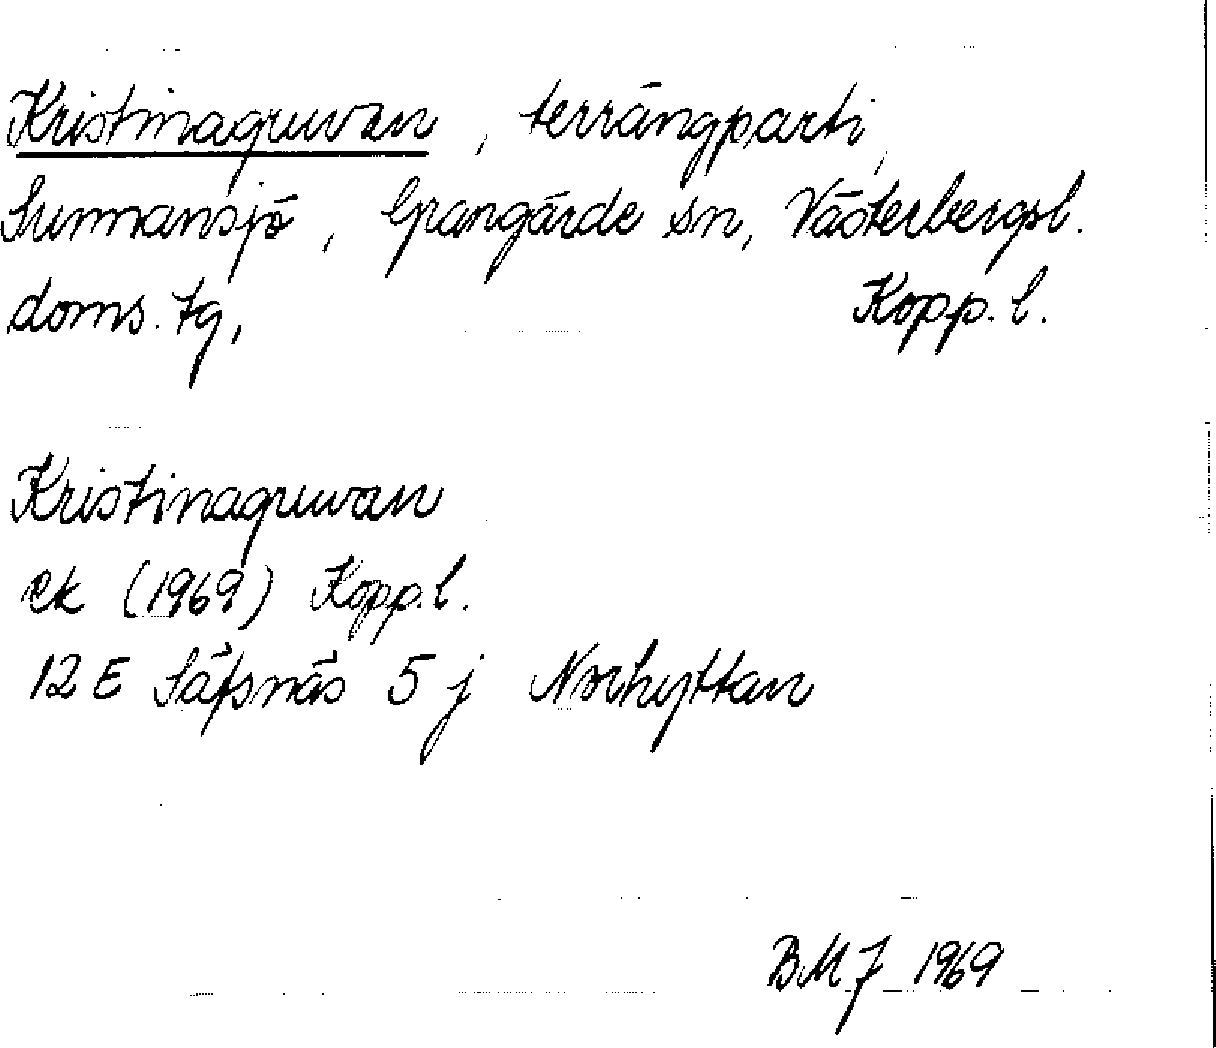 Kristinagruvan, terrängparti,
Sunnansjö, Grangärde sn, Västerbergsl.
doms. tg, Kopp. l.
Kristinagruvan
ek (1969) Kopp. l.
12 E Säfsnäs 5 j Norhyttan
BMJ 1969